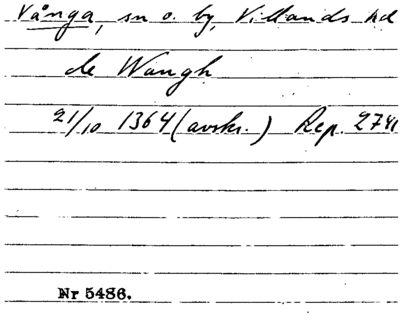 Vånga, sn o. by, Villands hd
de Wangh
21/10 1364 (avskr.) Rep. 274
Nr 5486.